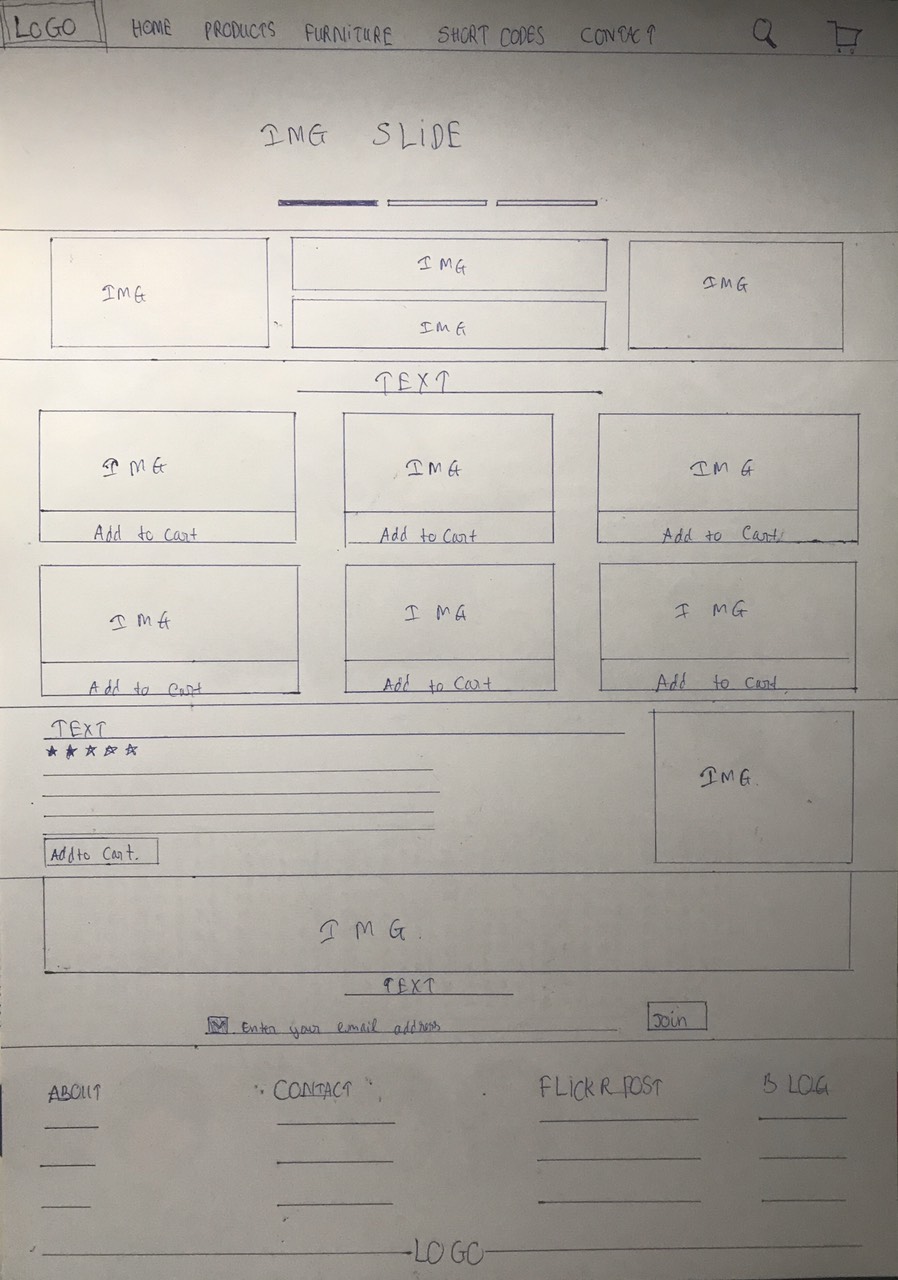 LOGO HOME PRODUCTS FURNITURE SHORT CODES CONTACT
IMG SLIDE
IMG IMG IMG
IMG
TEXT
IMG IMG IMG
Add to Cart Add to Cart Add to Cart
IMG IMG IMG
Add to Cart Add to Cart Add to Cart
TEXT
IMG
Add to Cart.
IMG.
TEXT
Enter your email address Join
ABOUT CONTACT FLICKR POST BLOG
LOGO